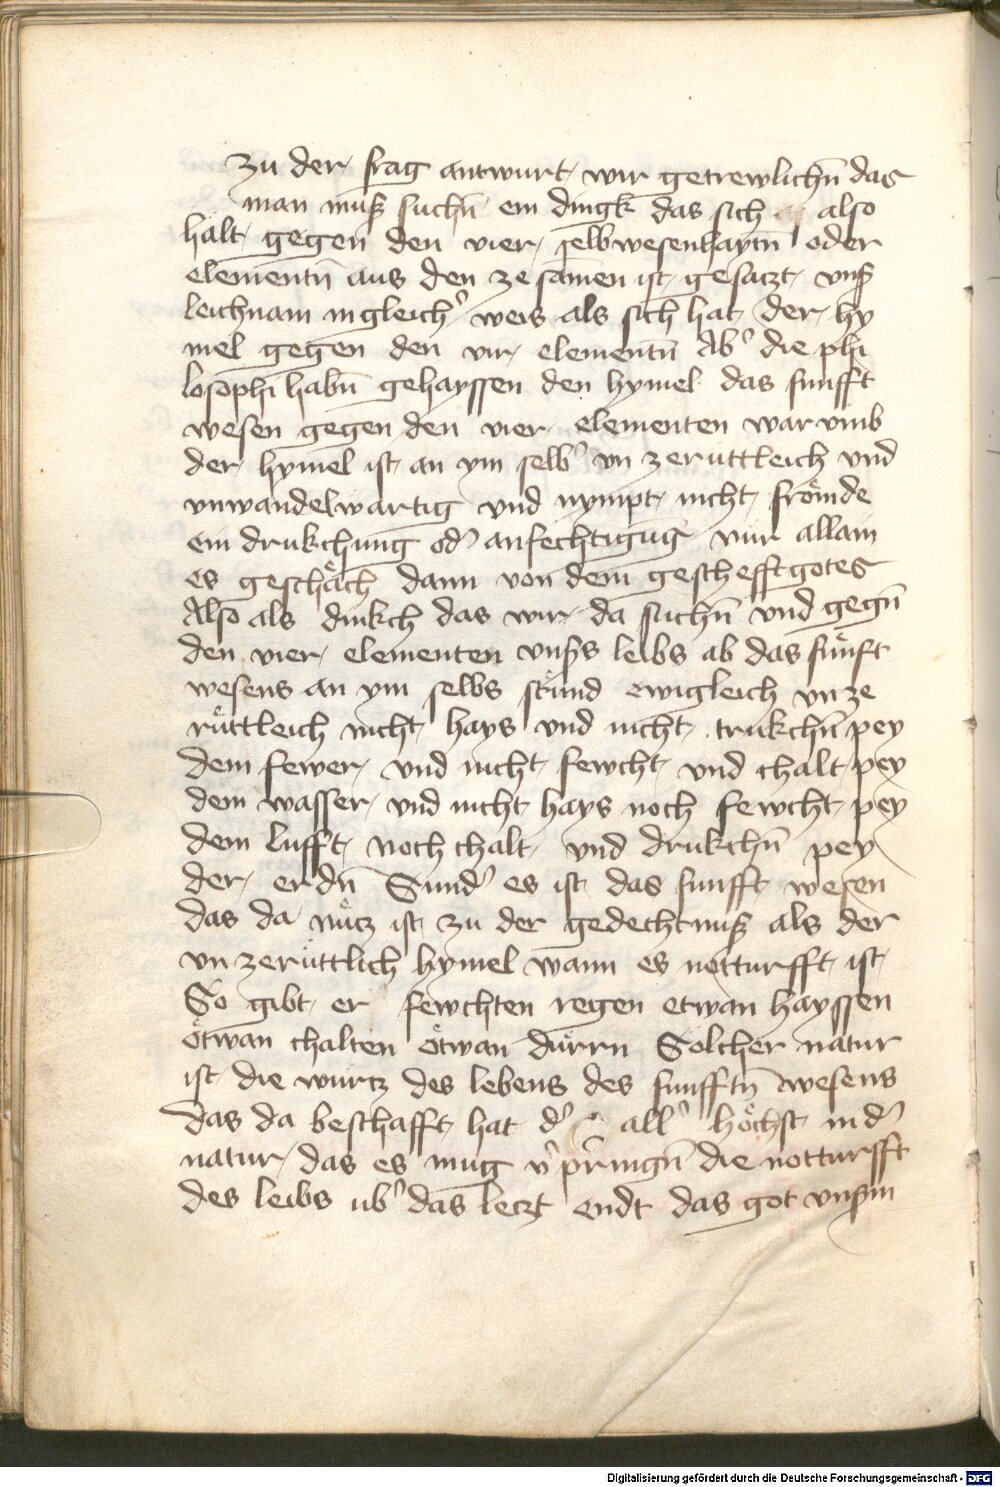 Zu der frag antwurt wir getrewlichn̄ das
man muß suchn̄ ein dingk das sich also
halt gegen den vier selbwesenhaytn̄ oder
elementn̄ aus den ze samen ist gesaczt vnß
leichnam in gleichˀ weis als sich hat der hy
mel gegen den vir elementn̄ Abˀ die phi
losophi habn̄ gehayssen den hymel das funfft
wesen gegen den vier elementen war vmb
der hymel ist an ym selbˀ vn zeruttleich vnd
vnwandelwartig vnd nympt nicht frömde
ein drukchung odˀ anfechtigūg nür allain
es geschäch dann von dem geschefft gotes
Also als dinkch das wir da suchn̄ vnd gegn̄
den vier elementen vnßs leibs ab das fünft
wesens an ym selbs stünd ewigleich vn ze
rüttleich nicht hays vnd nicht trukchn̄ pey
dem fewer vnd nicht fewcht vnd chalt pey
dem wasser vnd nicht hays noch fewcht pey
dem lufft noch chalt vnd drukchn̄ pey
der erdn̄ Sundˀ es ist das funfft wesen
das da nücz ist zu der gedechtnuß als der
vn zerüttlich hymel wann es notturfft ist
So gibt er fewchten regen etwan hayssen
ötwan chalten ötwan dürrn Solcher natur
ist die wurtz des lebens des funfftn̄ wesens
das da beschafft hat dˀ allˀ höchst in dˀ
natur das es mug vˀpringn̄ die notturfft
des leibs ubˀ das leczt endt das got vnßm
Digitalisierung gefördert durch die Deutsche Forschungsgemeinschaft - DFG